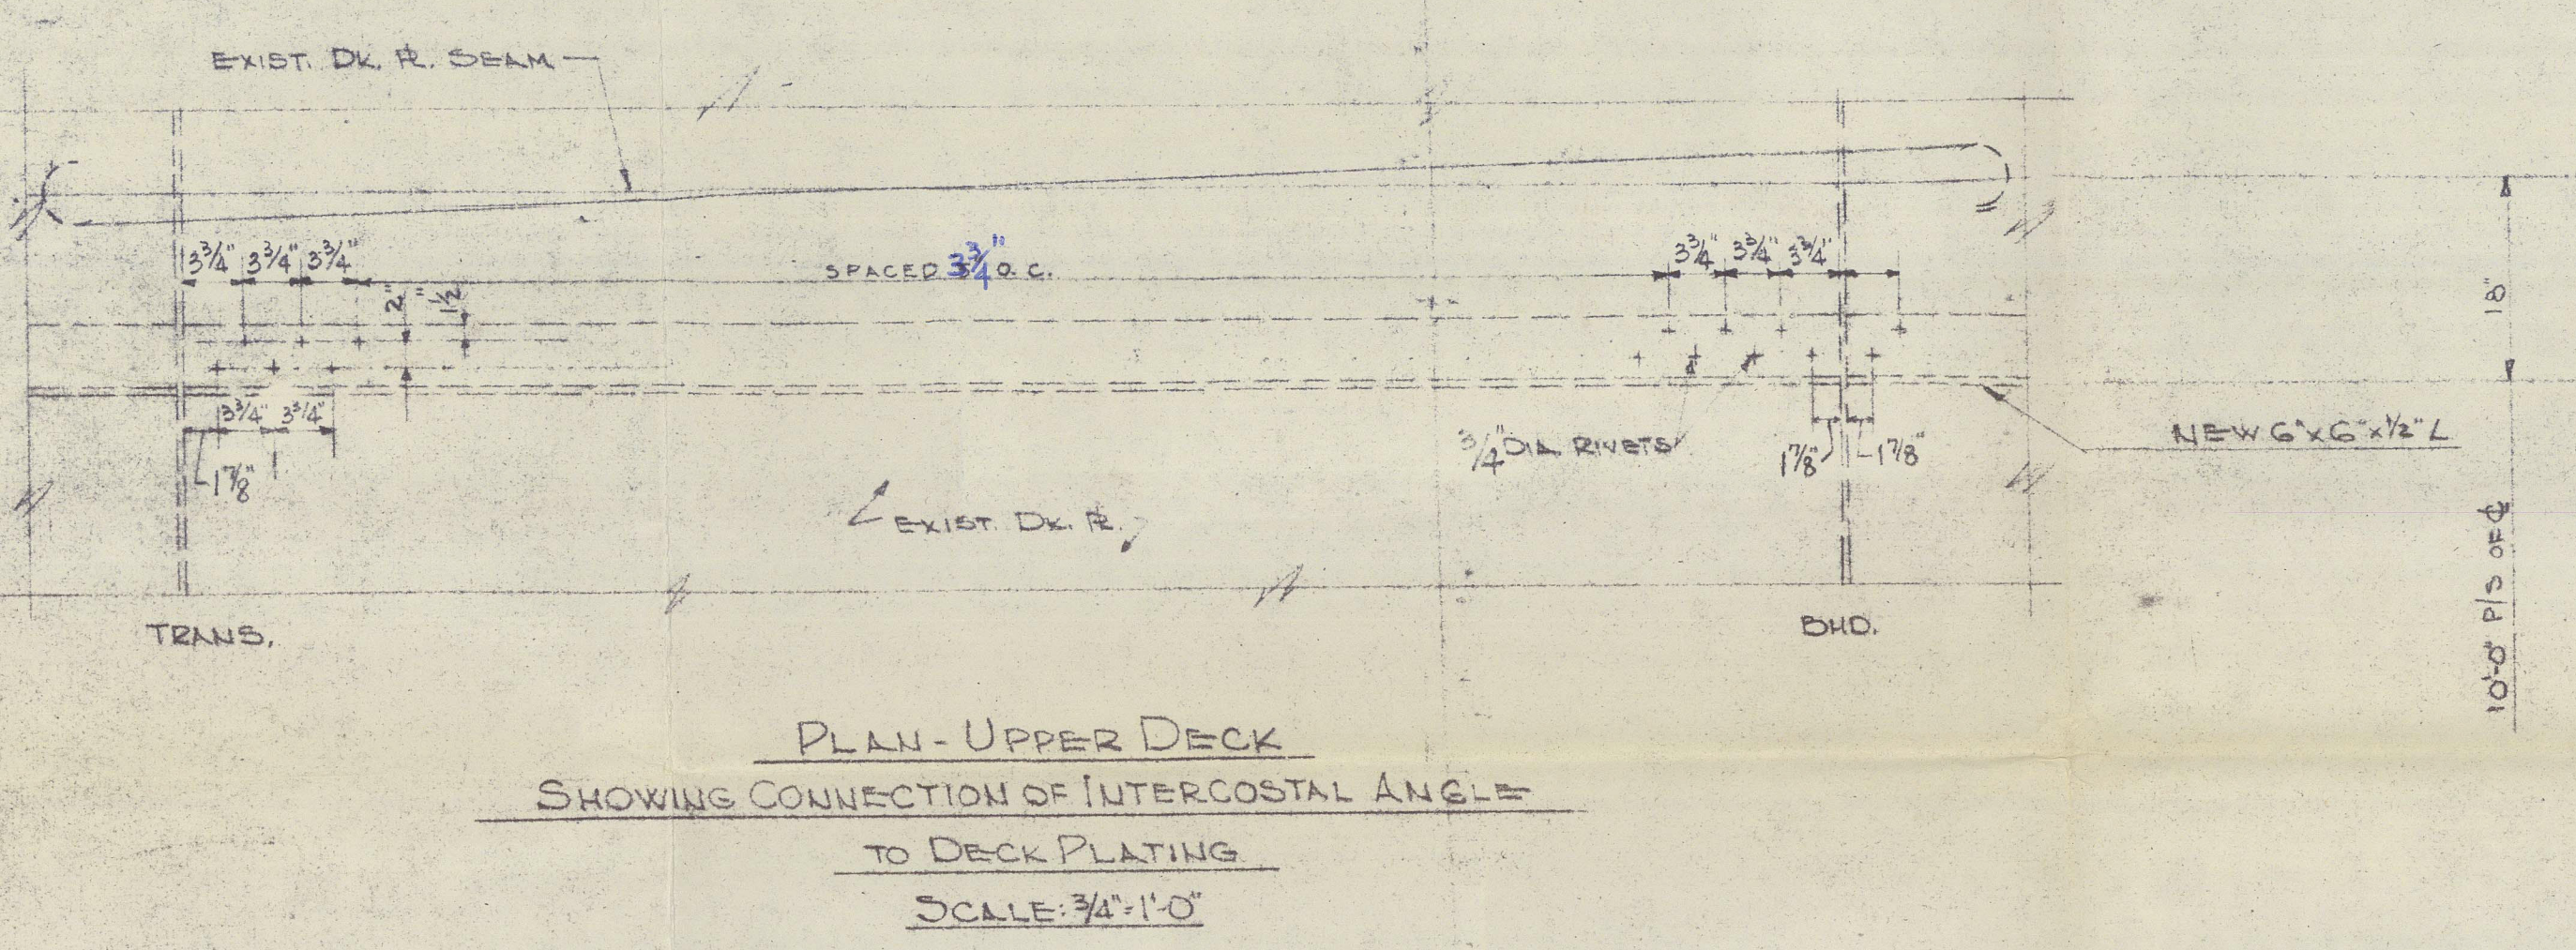 EXIST. DK. PL. SEAM
3 3/4" 3 3/4" 3 3/4"
SPACED 3 3/4" O. C.
3 3/4" 3 3/4" 3 3/4"
2"
1 1/2"
18"
3 3/4" 3 3/4"
1 7/8"
3/4" DIA. RIVETS
1 7/8"
1 7/8"
NEW 6" x 6" x 1/2" L
EXIST. DK. PL.
10'-0" P/S OF ℄
TRANS.
BHD.
PLAN - UPPER DECK
SHOWING CONNECTION OF INTERCOSTAL ANGLE
TO DECK PLATING
SCALE: 3/4" = 1'-0"